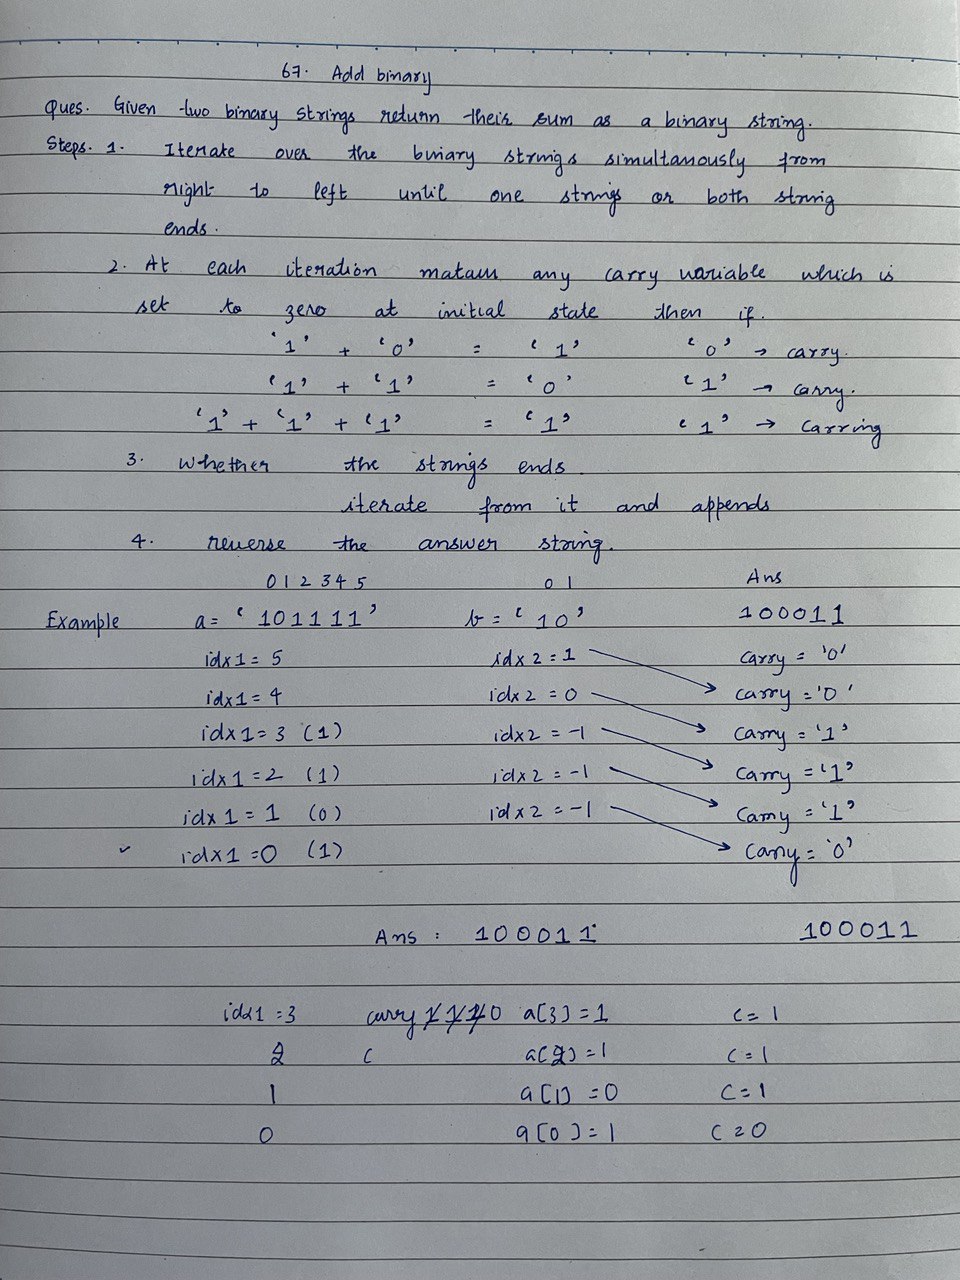 67. Add binary
Ques. Given two binary strings return their sum as a binary string.
Steps. 1. Iterate over the binary strings simultanously from
right to left until one strings or both string
ends.
2. At each iteration matain any carry variable which is
set to zero at initial state then if.
'1' + '0' = '1' '0' → carry.
'1' + '1' = '0' '1' → carry.
'1' + '1' + '1' = '1' '1' → carring
3. Whether the strings ends
iterate from it and appends
4. reverse the answer string.
0 1 2 3 4 5 0 1 Ans
Example a = '101111' b = '10' 100011
idx1 = 5 idx2 = 1 carry = '0'
idx1 = 4 idx2 = 0 carry = '0'
idx1 = 3 (1) idx2 = -1 carry = '1'
idx1 = 2 (1) idx2 = -1 carry = '1'
idx1 = 1 (0) idx2 = -1 carry = '1'
✓ idx1 = 0 (1) carry = '0'
Ans : 100011 100011
idx1 = 3 carry 1 1 1 0 a[3] = 1 c = 1
2 c a[2] = 1 c = 1
1 a[1] = 0 c = 1
0 a[0] = 1 c = 0